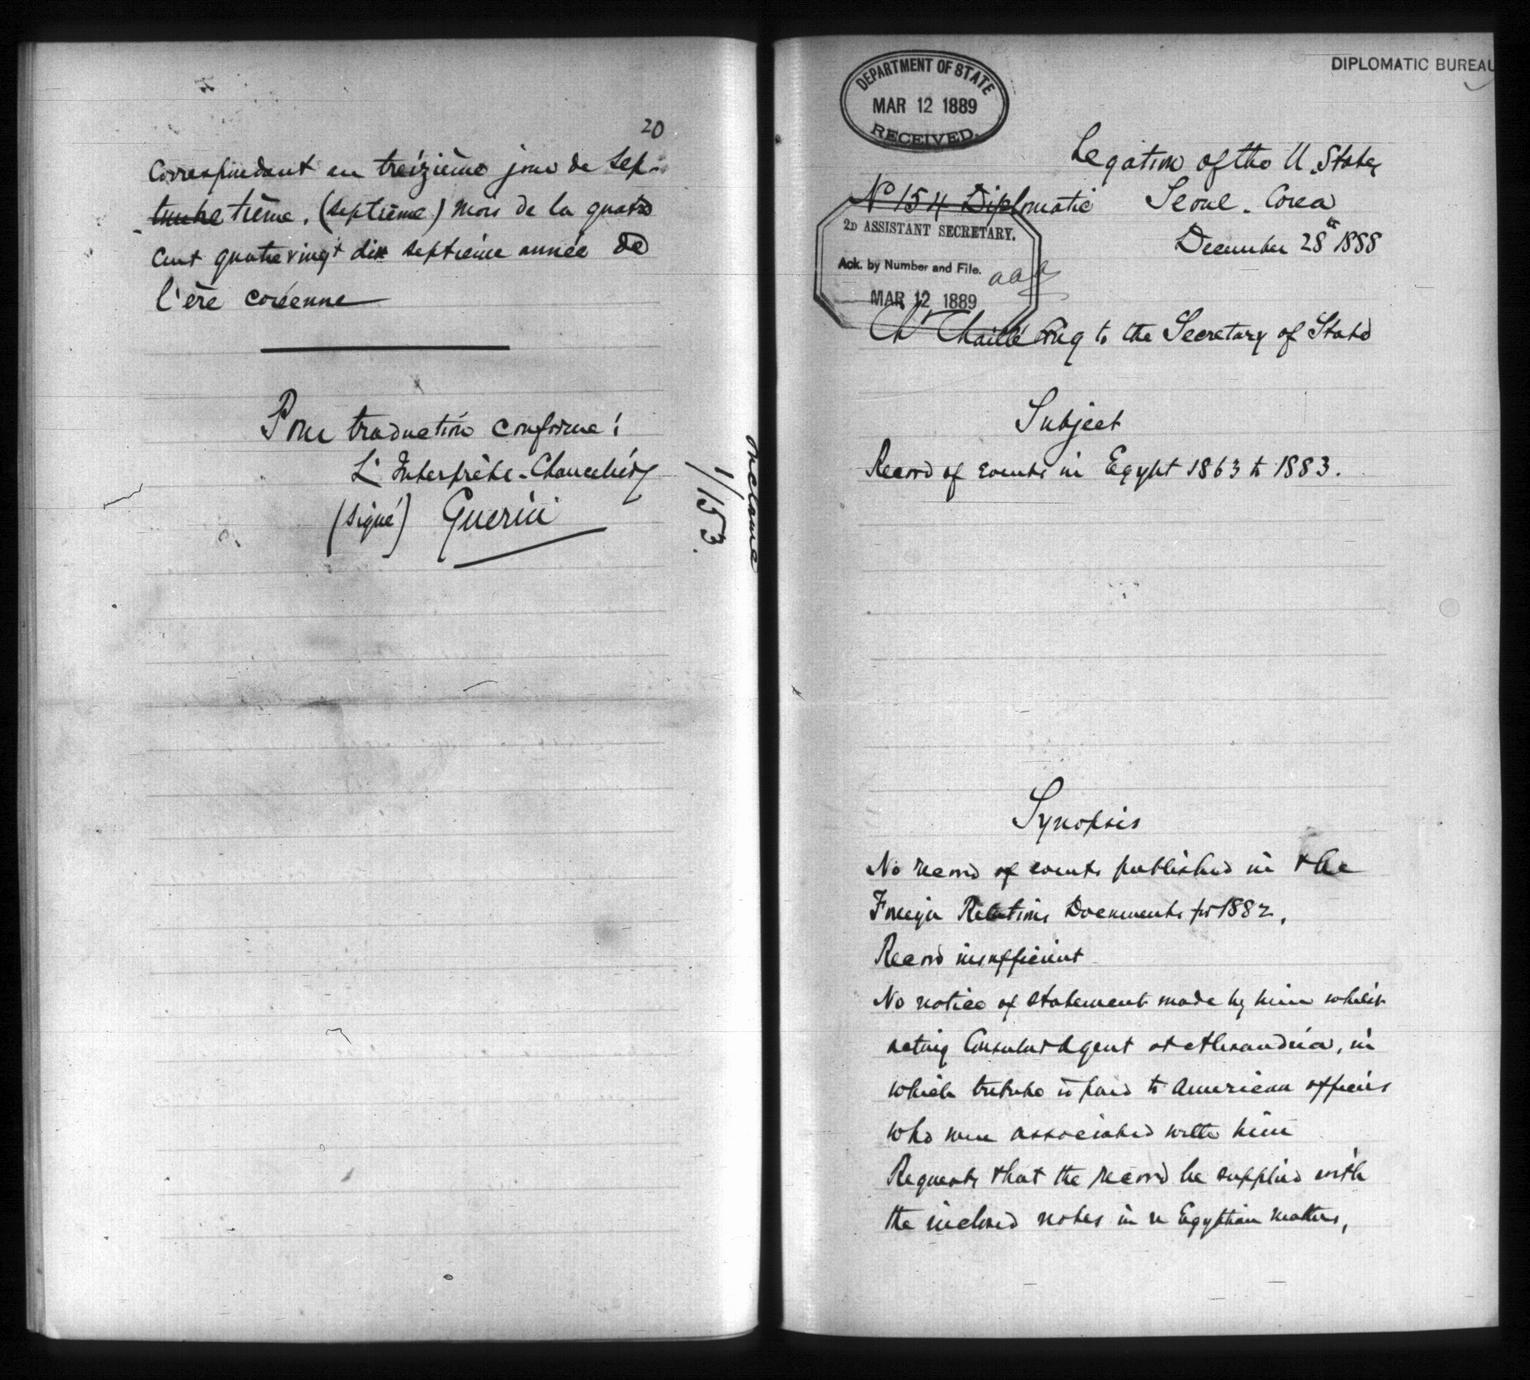 20
Correspondant au treizième jour de Sep-
tembre tième, (septième) mois de la quatre
cent quatrevingt dix septième année de
l'ère coréenne
Pour traduction conforme:
L'Interprète-Chancelier
(signé) Guerin
1/153.
DIPLOMATIC BUREAU
DEPARTMENT OF STATE
MAR 12 1889
RECEIVED.
Legation of the U. States
No 154 Diplomatic Seoul. Corea
December 28th 1888
2D ASSISTANT SECRETARY.
Ack. by Number and File.
MAR 12 1889
Ch. Chaillé Long to the Secretary of State
Subject
Record of events in Egypt 1863 to 1883.
Synopsis
No record of events published in the
Foreign Relations Documents for 1882.
Record insufficient
No notice of statement made by him whilst
acting Consular Agent at Alexandria, in
which tribute is paid to American officers
who were associated with him
Requests that the record be supplied with
the inclosed notes in re Egyptian matters,